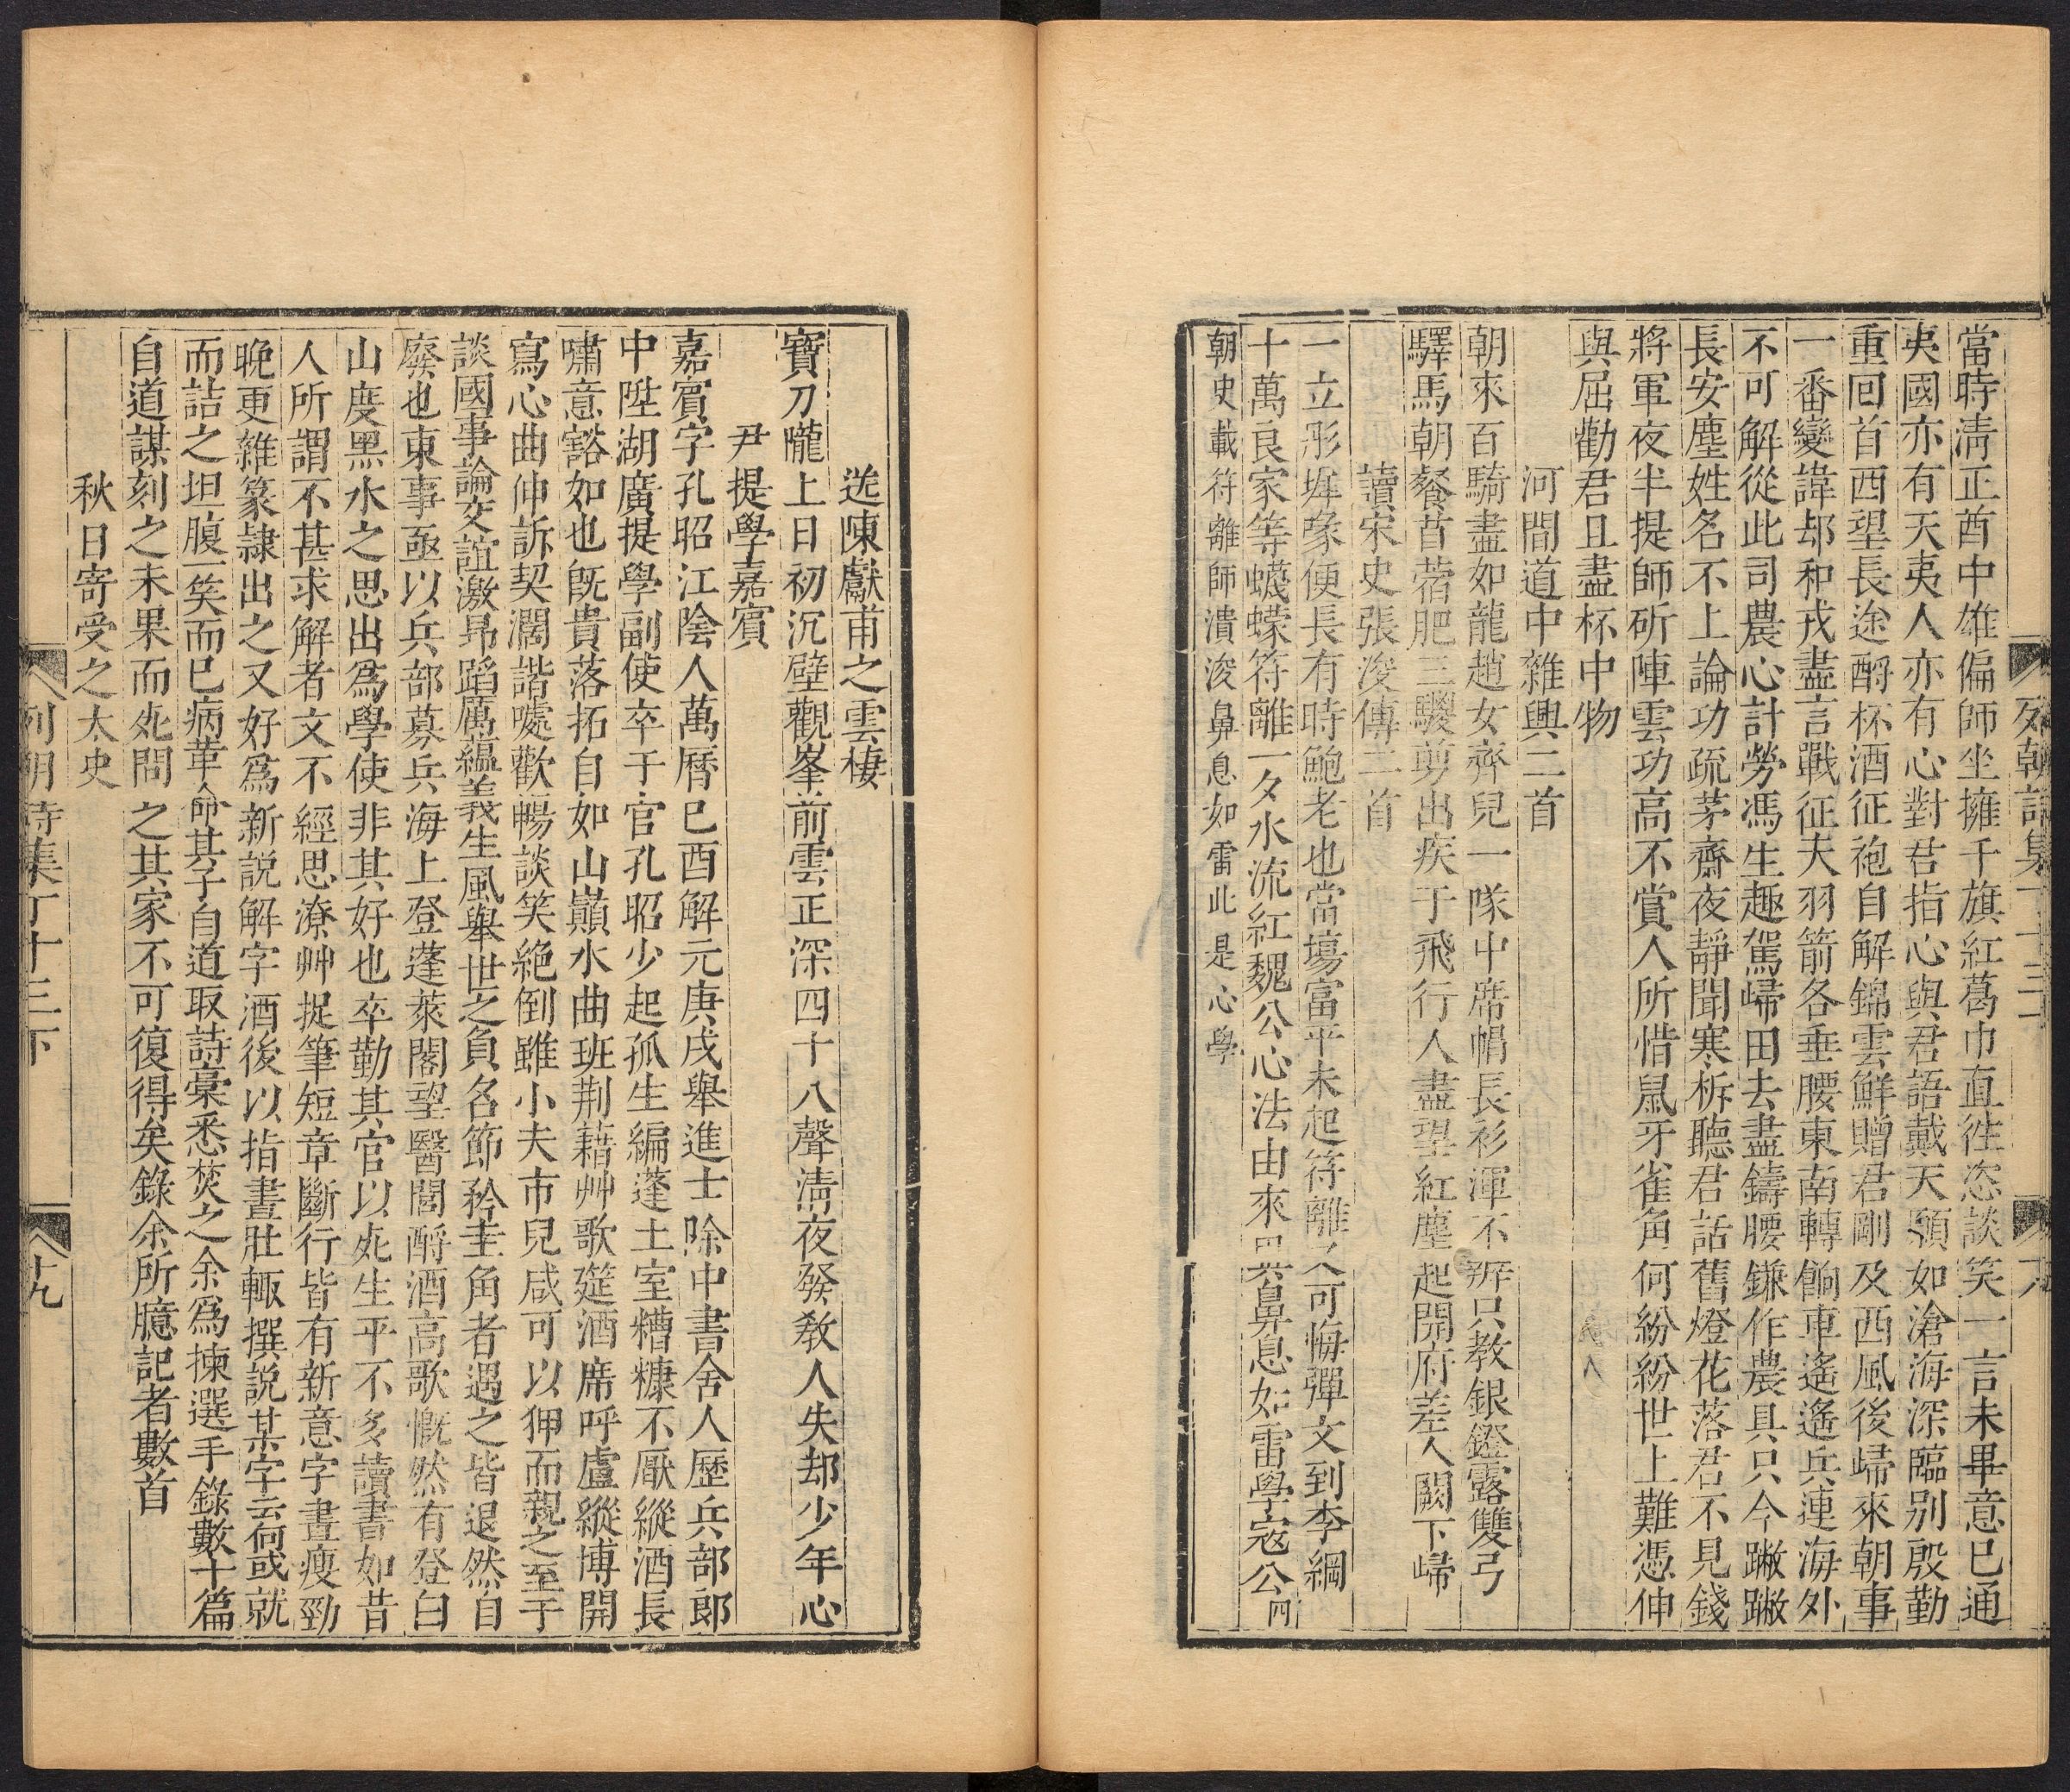 列朝詩集丁十三下
十八
當時淸正酋中雄偏師坐擁千旗紅葛巾直徃恣談笑一言未畢意已通
夷國亦有天夷人亦有心對君指心與君語戴天願如滄海深臨别殷勤
重回首西望長途酹杯酒征袍自解錦雲鮮贈君剛及西風後歸來朝事
一番變諱却和戎盡言戰征夫羽箭各垂腰東南轉餉車遙遙兵連海外
不可解從此司農心計勞馮生趣駕歸田去盡鑄腰鎌作農具只今蹴蹴
長安塵姓名不上論功疏茅齋夜靜聞寒柝聽君話舊燈花落君不見錢
將軍夜半提師斫陣雲功高不賞人所惜鼠牙雀角何紛紛世上難憑伸
與屈勸君且盡杯中物
河間道中雜興二首
朝來百騎盡如龍趙女齊兒一隊中席帽長衫渾不辨只教銀鐙露雙弓
驛馬朝餐苜蓿肥三騣剪出疾于飛行人盡望紅塵起開府差人闕下歸
讀宋史張浚傳二首
一立彤墀彖便長有時鮑老也當塲富平未起符離又可悔彈文到李綱
十萬良家等蠛蠓符離一夕水流紅魏公心法由來異鼻息如雷學寇公
朝史載符離師潰浚鼻息如雷此是心學
送陳獻甫之雲棲
寶刀隴上日初沉壁觀峯前雲正深四十八聲淸夜發教人失却少年心
尹提學嘉賓
嘉賓字孔昭江陰人萬曆己酉解元庚戌舉進士除中書舍人歷兵部郎
中陞湖廣提學副使卒于官孔昭少起孤生編蓬土室糟糠不厭縱酒長
嘯意豁如也旣貴落拓自如山巓水曲班荆藉艸歌筵酒席呼盧縱博開
寫心曲伸訴契濶諧噱歡暢談笑絶倒雖小夫市兒咸可以狎而親之至于
談國事論交誼激昻蹈厲蘊義生風舉世之負名節矜圭角者遇之皆退然自
廢也東事亟以兵部募兵海上登蓬萊閣望醫閭酹酒高歌慨然有登白
山度黑水之思出爲學使非其好也卒勤其官以死生平不多讀書如昔
人所謂不甚求解者文不經思潦艸捉筆短章斷行皆有新意字畫瘦勁
晚更雜篆隷出之又好爲新説解字酒後以指畫壯輙撰説某字云何或就
而詰之坦腹一笑而已病革命其子自道取詩稾悉焚之余爲揀選手錄數十篇
自道謀刻之未果而死問之其家不可復得矣錄余所臆記者數首
秋日寄受之太史
列朝詩集丁十三下
十九